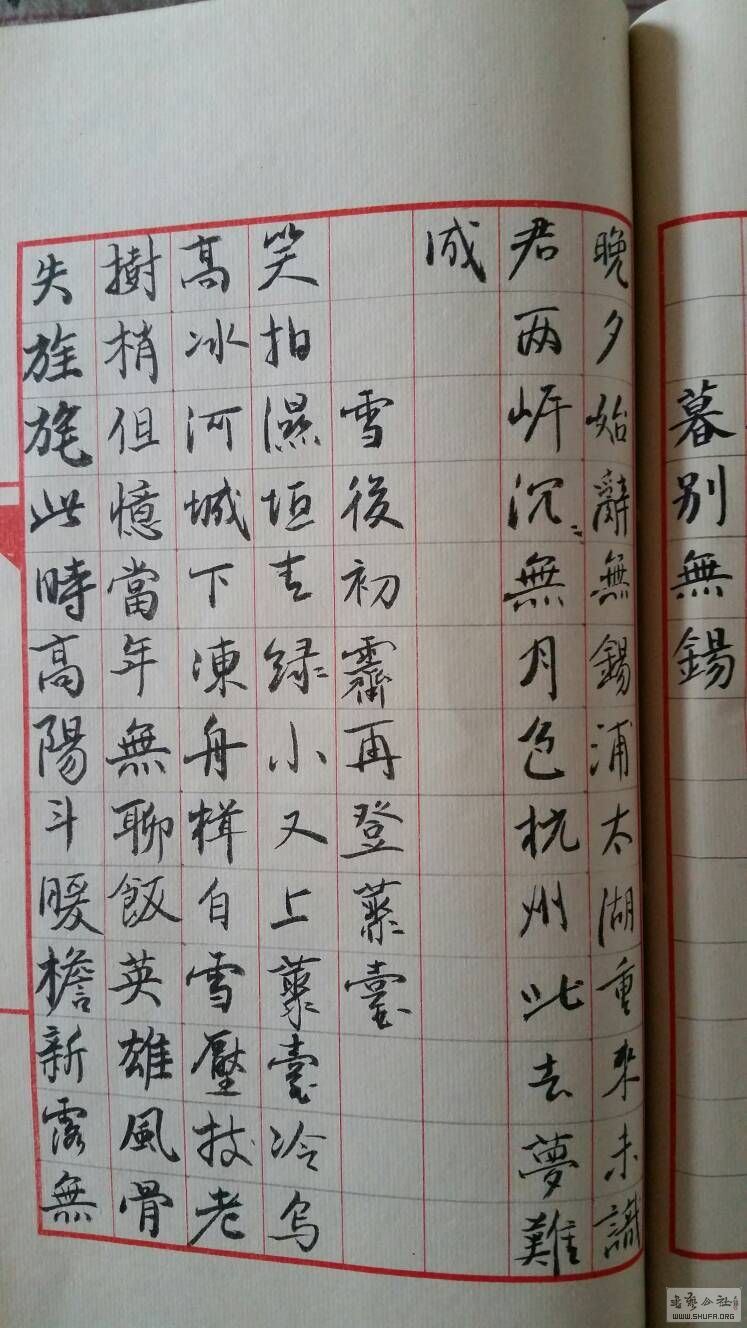 暮别無錫
晚夕始辭無錫浦太湖重来未識
君两岸沉〻無月色杭州此去夢難
成
雪後初霽再登叢臺
笑拍濕垣去绿小又上叢臺冷鸟
高冰河城下凍舟楫白雪壓技老
樹梢但憶當年無聊飯英雄風骨
失旌旄此時高陽斗暖檐新露無
WWW.SHUFA.ORG